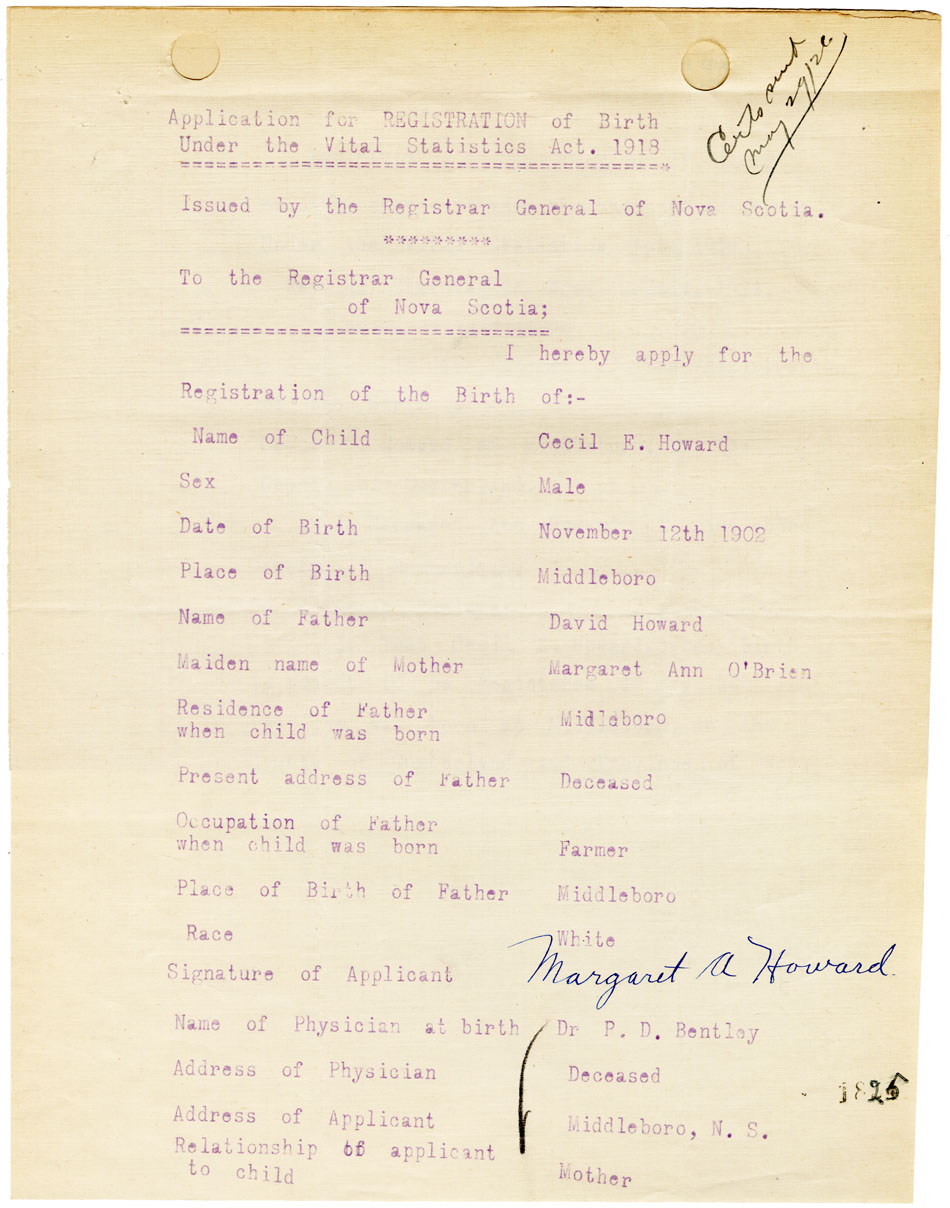 Certs sent
May 29/26
Application for REGISTRATION of Birth
Under the Vital Statistics Act. 1918
=========================================*
Issued by the Registrar General of Nova Scotia.
*********
To the Registrar General
of Nova Scotia;
===============================
I hereby apply for the
Registration of the Birth of:-
Name of Child Cecil E. Howard
Sex Male
Date of Birth November 12th 1902
Place of Birth Middleboro
Name of Father David Howard
Maiden name of Mother Margaret Ann O'Brien
Residence of Father
when child was born Midleboro
Present address of Father Deceased
Occupation of Father
when child was born Farmer
Place of Birth of Father Middleboro
Race White
Signature of Applicant Margaret A Howard.
Name of Physician at birth Dr P. D. Bentley
Address of Physician Deceased
1825
Address of Applicant Middleboro, N. S.
Relationship of applicant
to child Mother